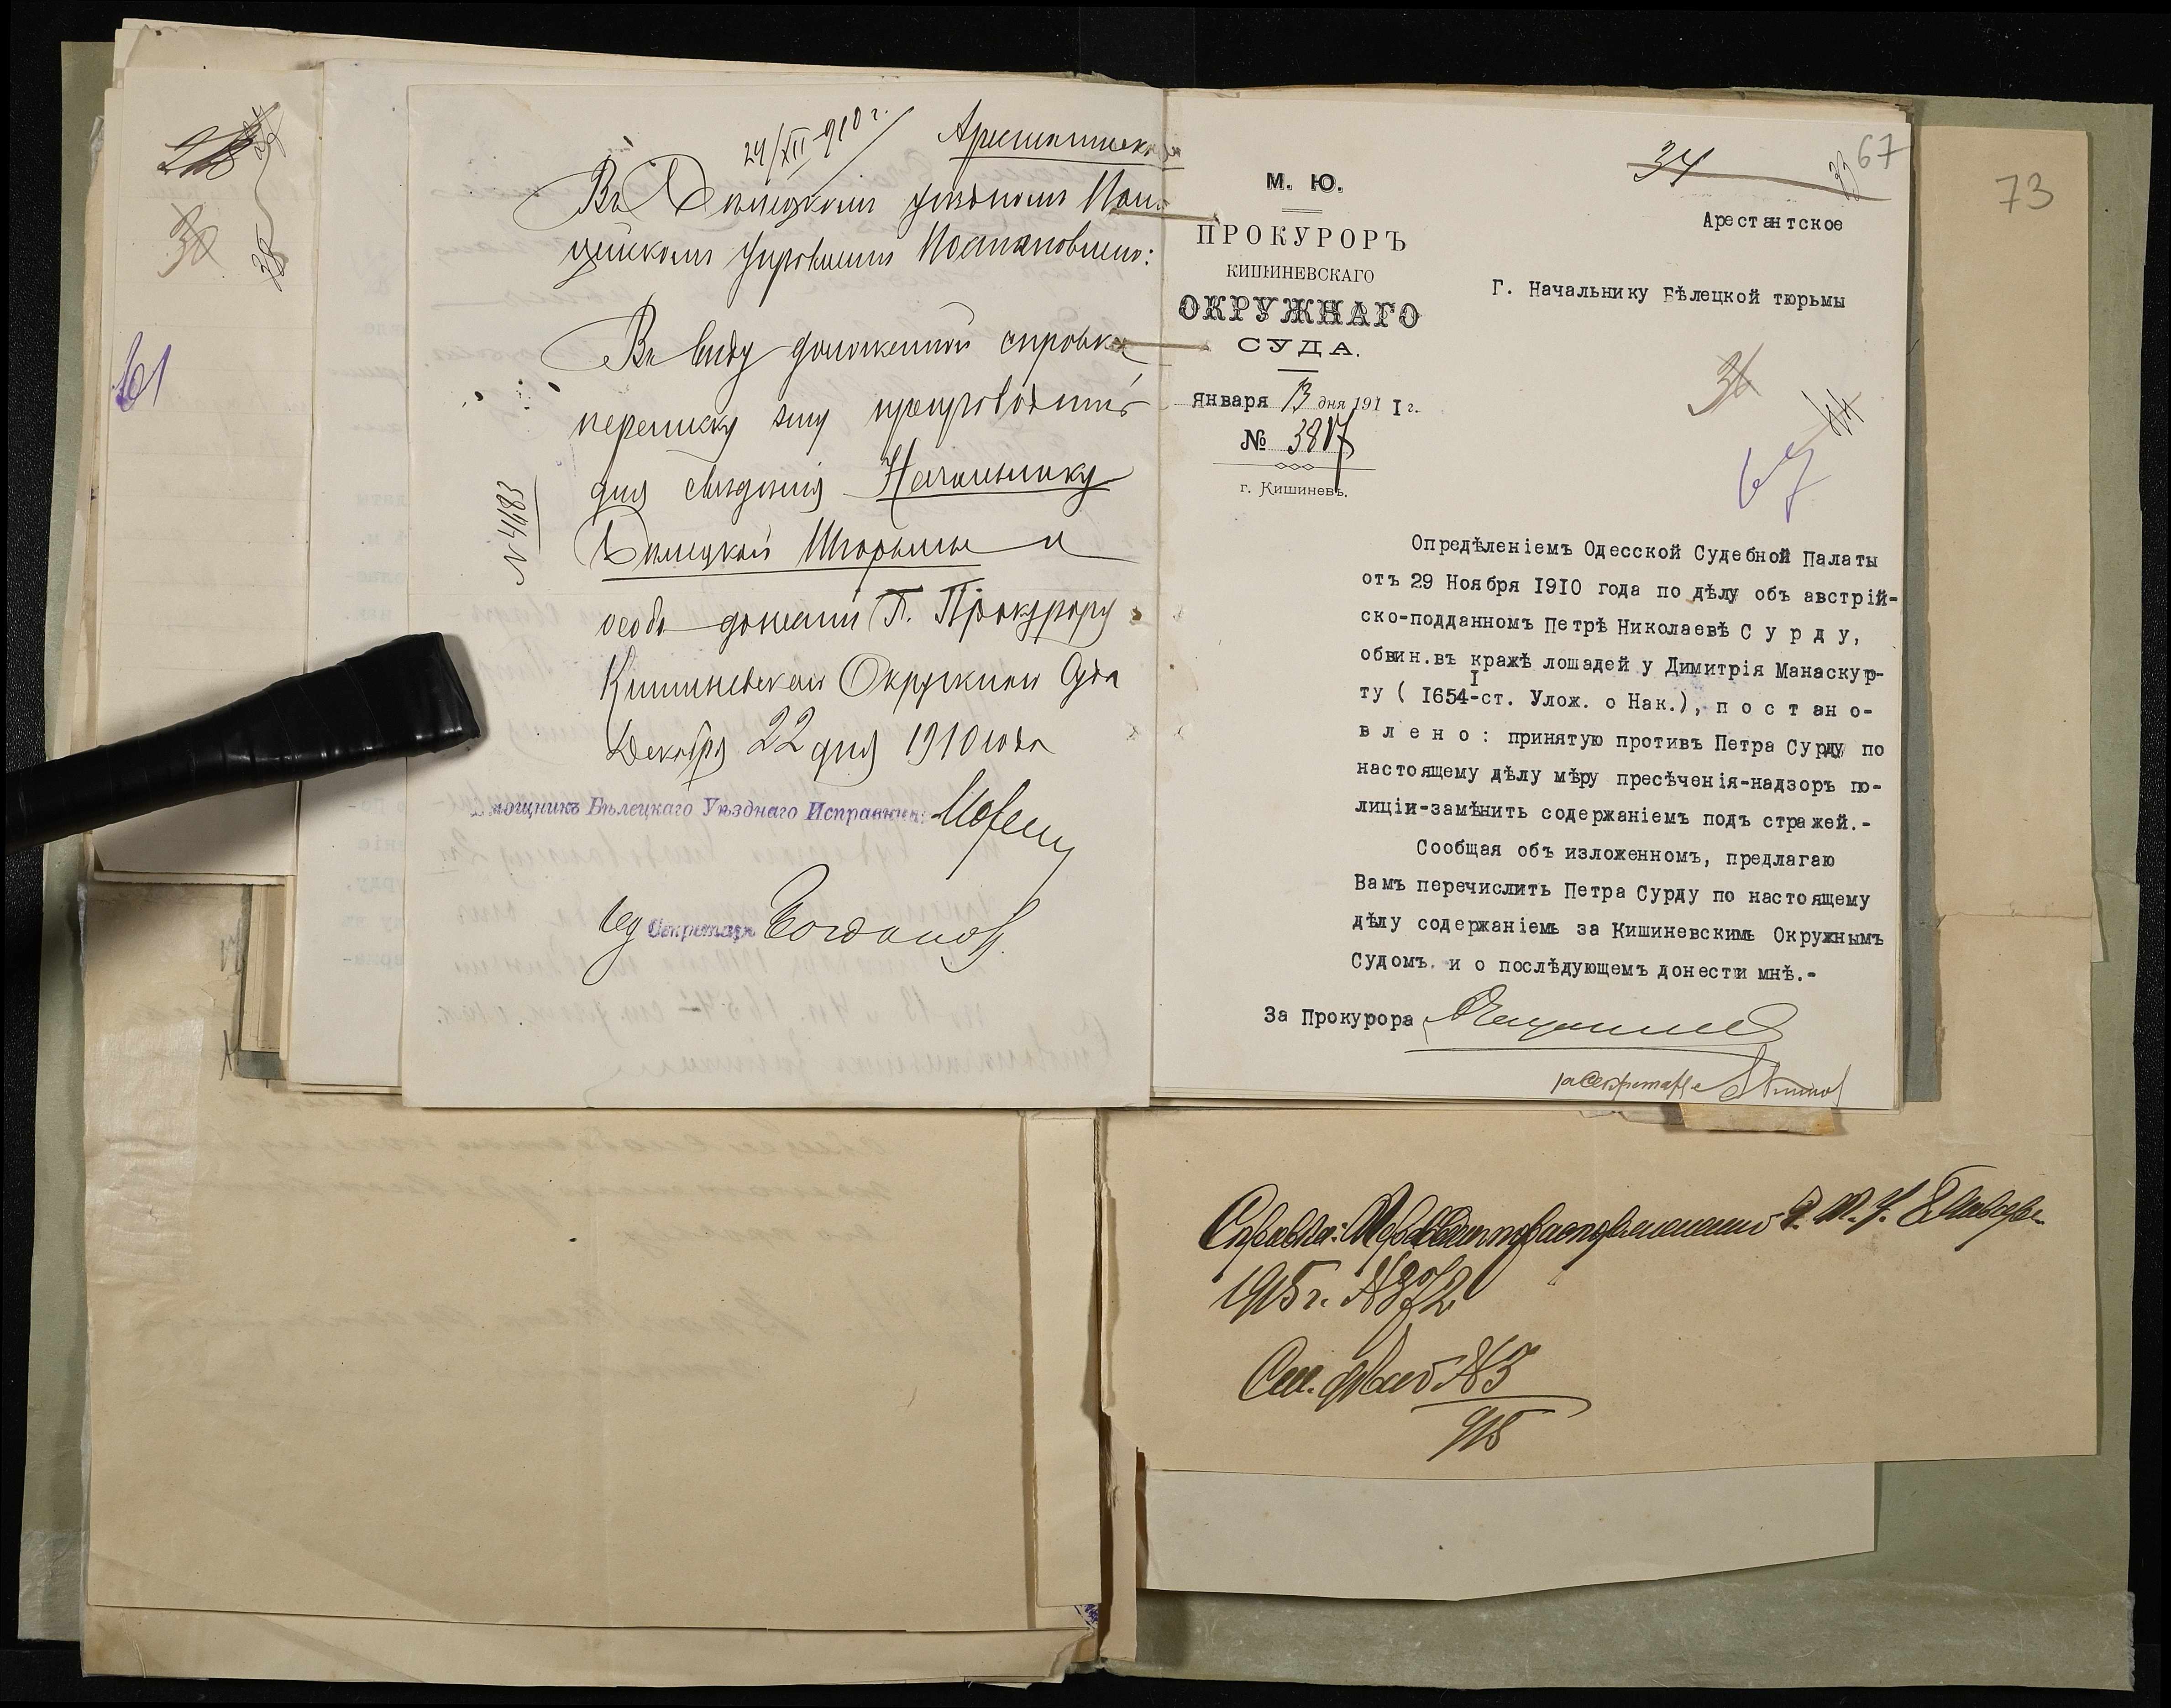 24/XII 910 г.
Арестантск
Въ Бѣлецкомъ уѣздномъ Поли
цейскомъ Управленіи Постановлено:
Въ виду доложенной справки
переписку эту препроводить
для свѣдѣнія Начальнику
Бѣлецкой Тюрьмы и
особо донести Г. Прокурору
Кишиневскаго Окружнаго Суда
Декабря 22 дня 1910 года
№ 4483
мощникъ Бѣлецкаго Уѣзднаго Исправника:
Секретарь Богданов
61
67
34
33
М. Ю.
ПРОКУРОРЪ
КИШИНЕВСКАГО
ОКРУЖНАГО
СУДА.
Января 13 дня 1911 г.
№ 3817
г. Кишиневъ.
Арестантское
Г. Начальнику Бѣлецкой тюрьмы
67
Опредѣленіемъ Одесской Судебной Палаты
отъ 29 Ноября I9I0 года по дѣлу объ австрій-
ско-подданномъ Петрѣ Николаевѣ С у р д у,
обвин.въ кражѣ лошадей у Димитрія Манаскур-
ту ( I654-I ст. Улож. о Нак.), п о с т ан о-
в л е н о : принятую противъ Петра Сурду по
настоящему дѣлу мѣру пресѣченія-надзоръ по-
лиціи-замѣнить содержаніемъ подъ стражей.-
Сообщая объ изложенномъ, предлагаю
Вамъ перечислить Петра Сурду по настоящему
дѣлу содержаніемъ за Кишиневскимъ Окружнымъ
Судомъ. и о послѣдующемъ донести мнѣ.-
За Прокурора
за Секретаря
73
Справка:
1915 г. №
См. дѣло № 5
915